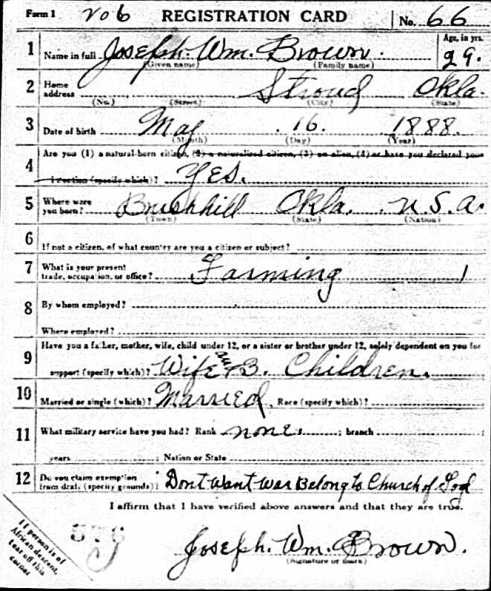 Form 1 REGISTRATION CARD No. 66
1 Name in full Joseph. Wm. Brown. Age, in yrs. 29.
(Given name) (Family name)
2 Home address Stroud Okla.
(No.) (Street) (City) (State)
3 Date of birth May 16. 1888.
(Month) (Day) (Year)
4 Are you (1) a natural-born citizen, (2) a naturalized citizen, (3) an alien, (4) or have you declared your
intention (specify which)? Yes.
5 Where were you born? Brushhill Okla. U.S.A.
(Town) (State) (Nation)
6 If not a citizen, of what country are you a citizen or subject?
7 What is your present trade, occupation, or office? Farming 1
8 By whom employed?
Where employed?
9 Have you a father, mother, wife, child under 12, or a sister or brother under 12, solely dependent on you for
support (specify which)? Wife 3. Children.
10 Married or single (which)? Married. Race (specify which)?
11 What military service have you had? Rank none. ; branch ;
years ; Nation or State
12 Do you claim exemption from draft (specify grounds)? Dont Want War Belong to Church of God
I affirm that I have verified above answers and that they are true.
576
If person is of African descent, tear off this corner
Joseph. Wm. Brown.
(Signature or mark)